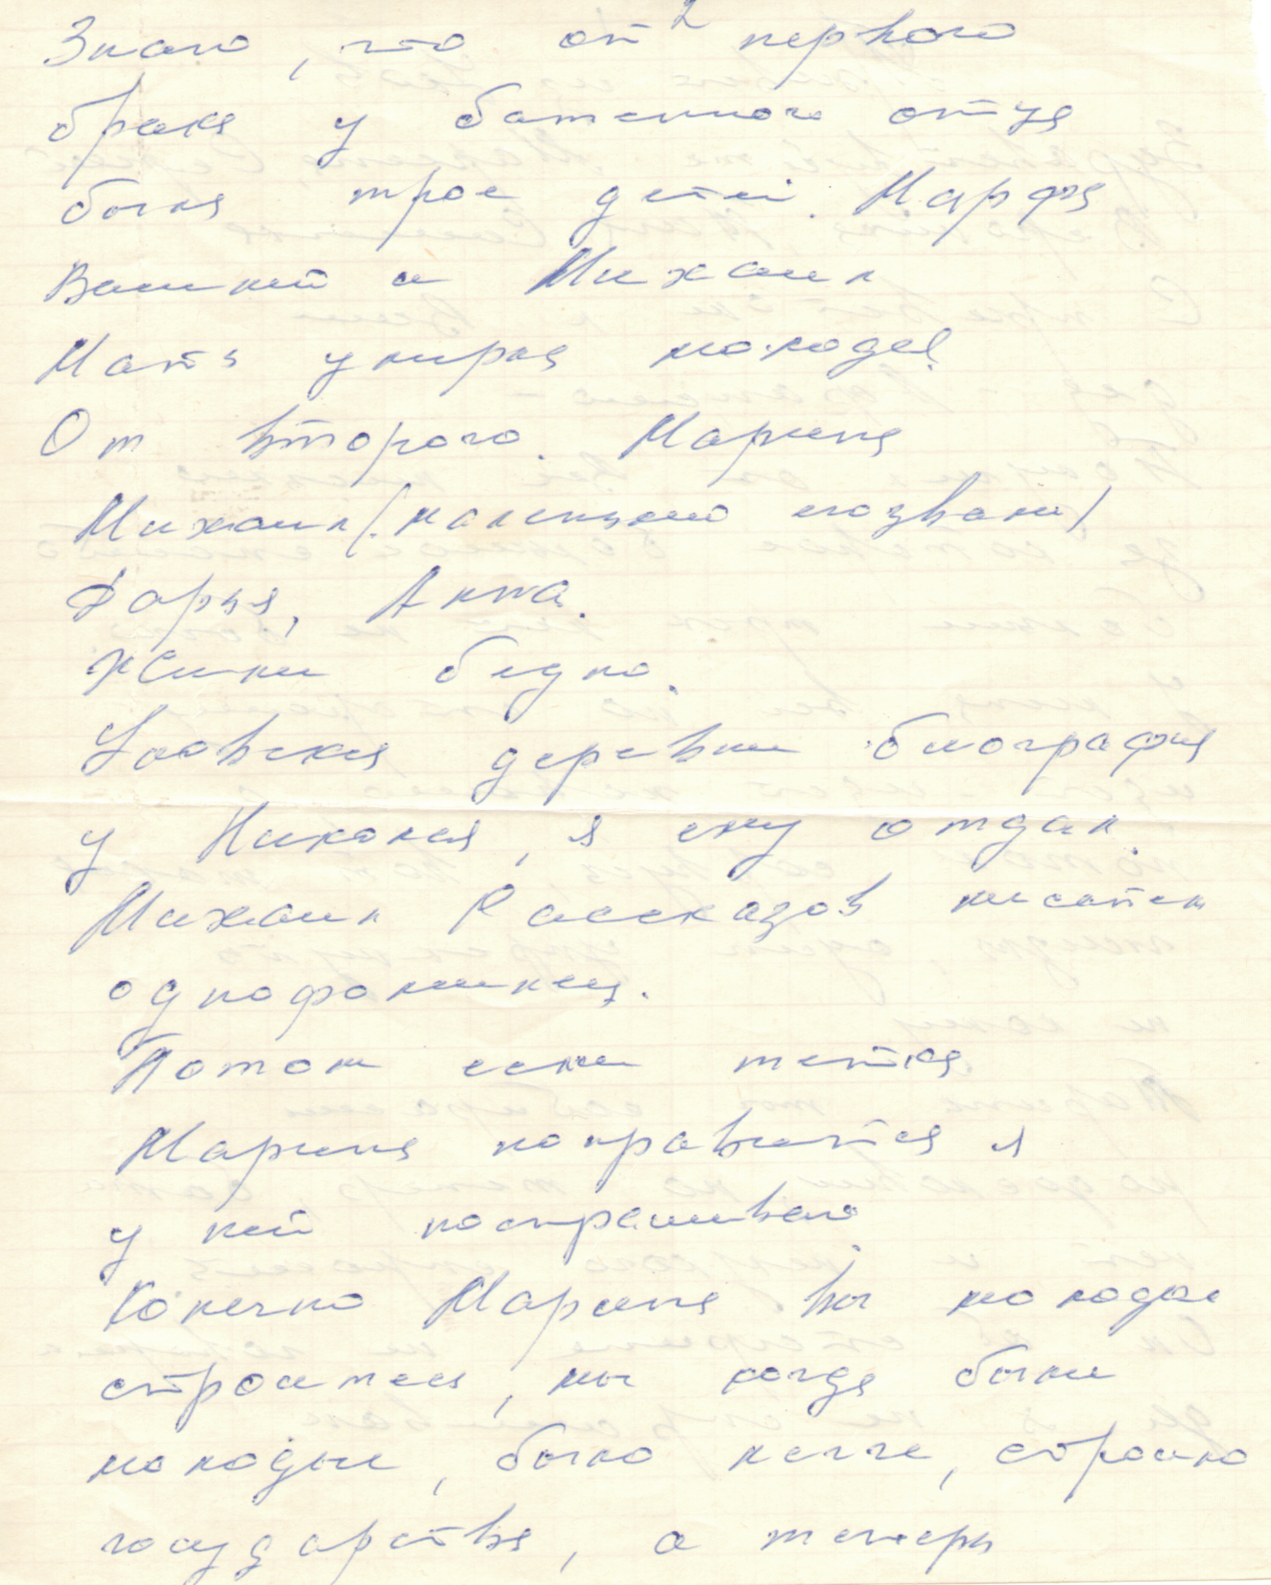 Знаю, что от 2 первого
брака у батенного отца
была трое детей. Марфа
Василий и Михаил
Мать умирла молодой
От второго. Марина
Михаил (маленького назвали)
Дарья, Анна.
Жили бедно.
деревни биография
у Николая, я ему отдал.
Михаил Рассказов писатель
однофамилец.
Потом если тётка
Марина поправится я
у ней поспрашиваю
Конечно Марина вы молодые
строитесь, мы когда были
молодые, было легче, строило
государства, а теперь